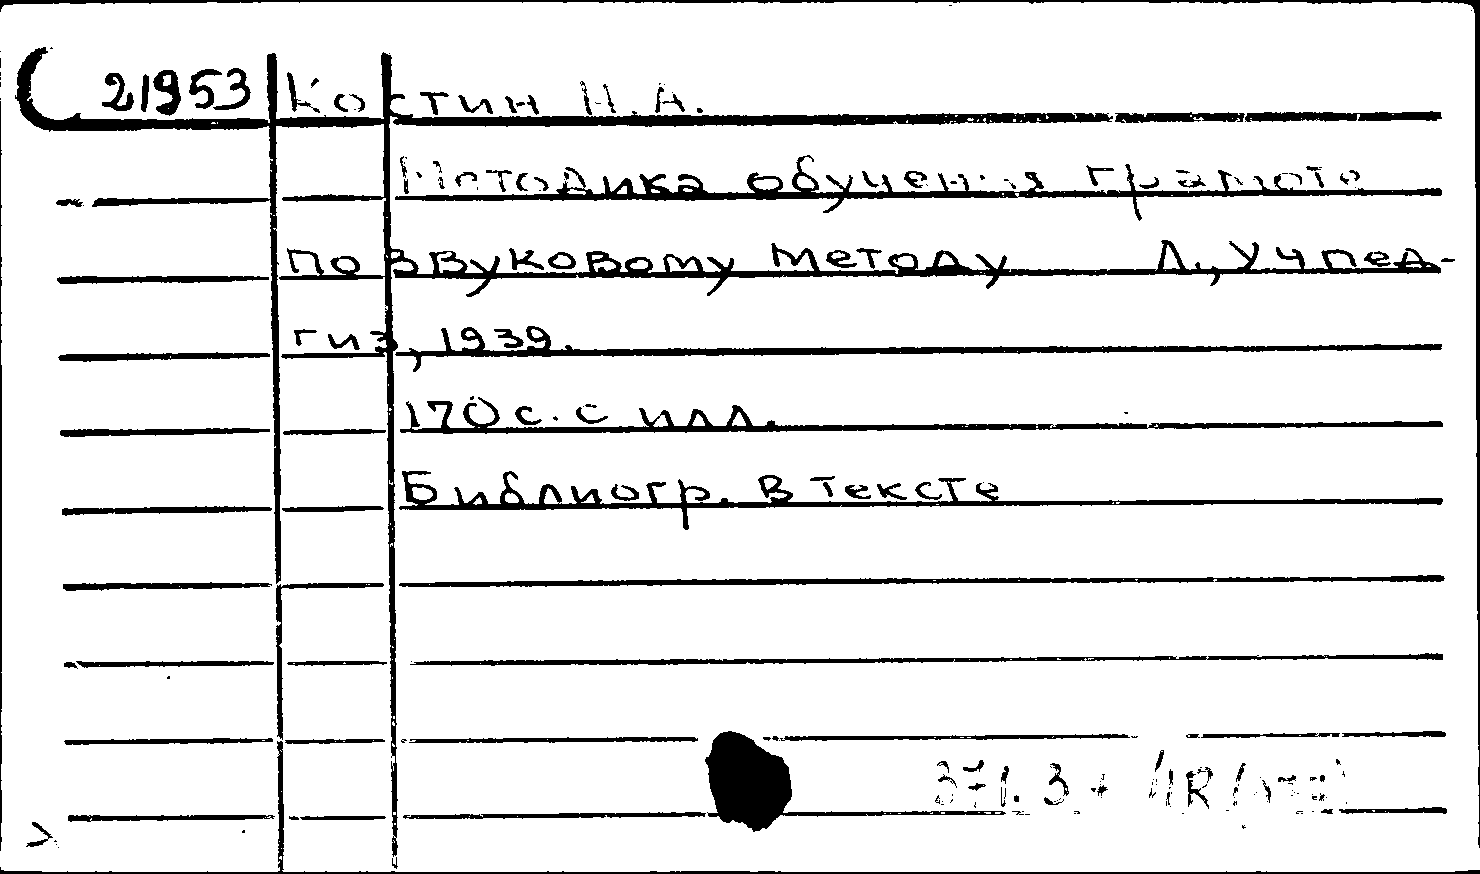 21953 Костин Н.А.
Методика обучения грамоте
по звуковому методу Л., Учпед-
гиз, 1939.
170 с. с илл.
Библиогр. в тексте
371.3 +